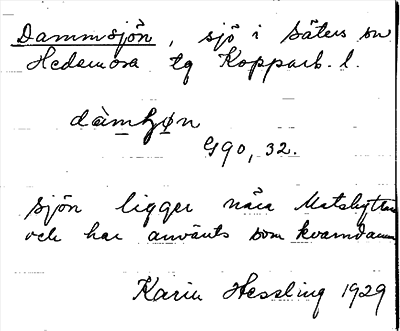 Dammsjön, sjö i Säters sn
Hedemora tg Kopparb. l.
dàmʃøn
G 90, 32.
sjön ligger nära Matshyttan
och har använts som kvarndamm
Karin Hessling 1929